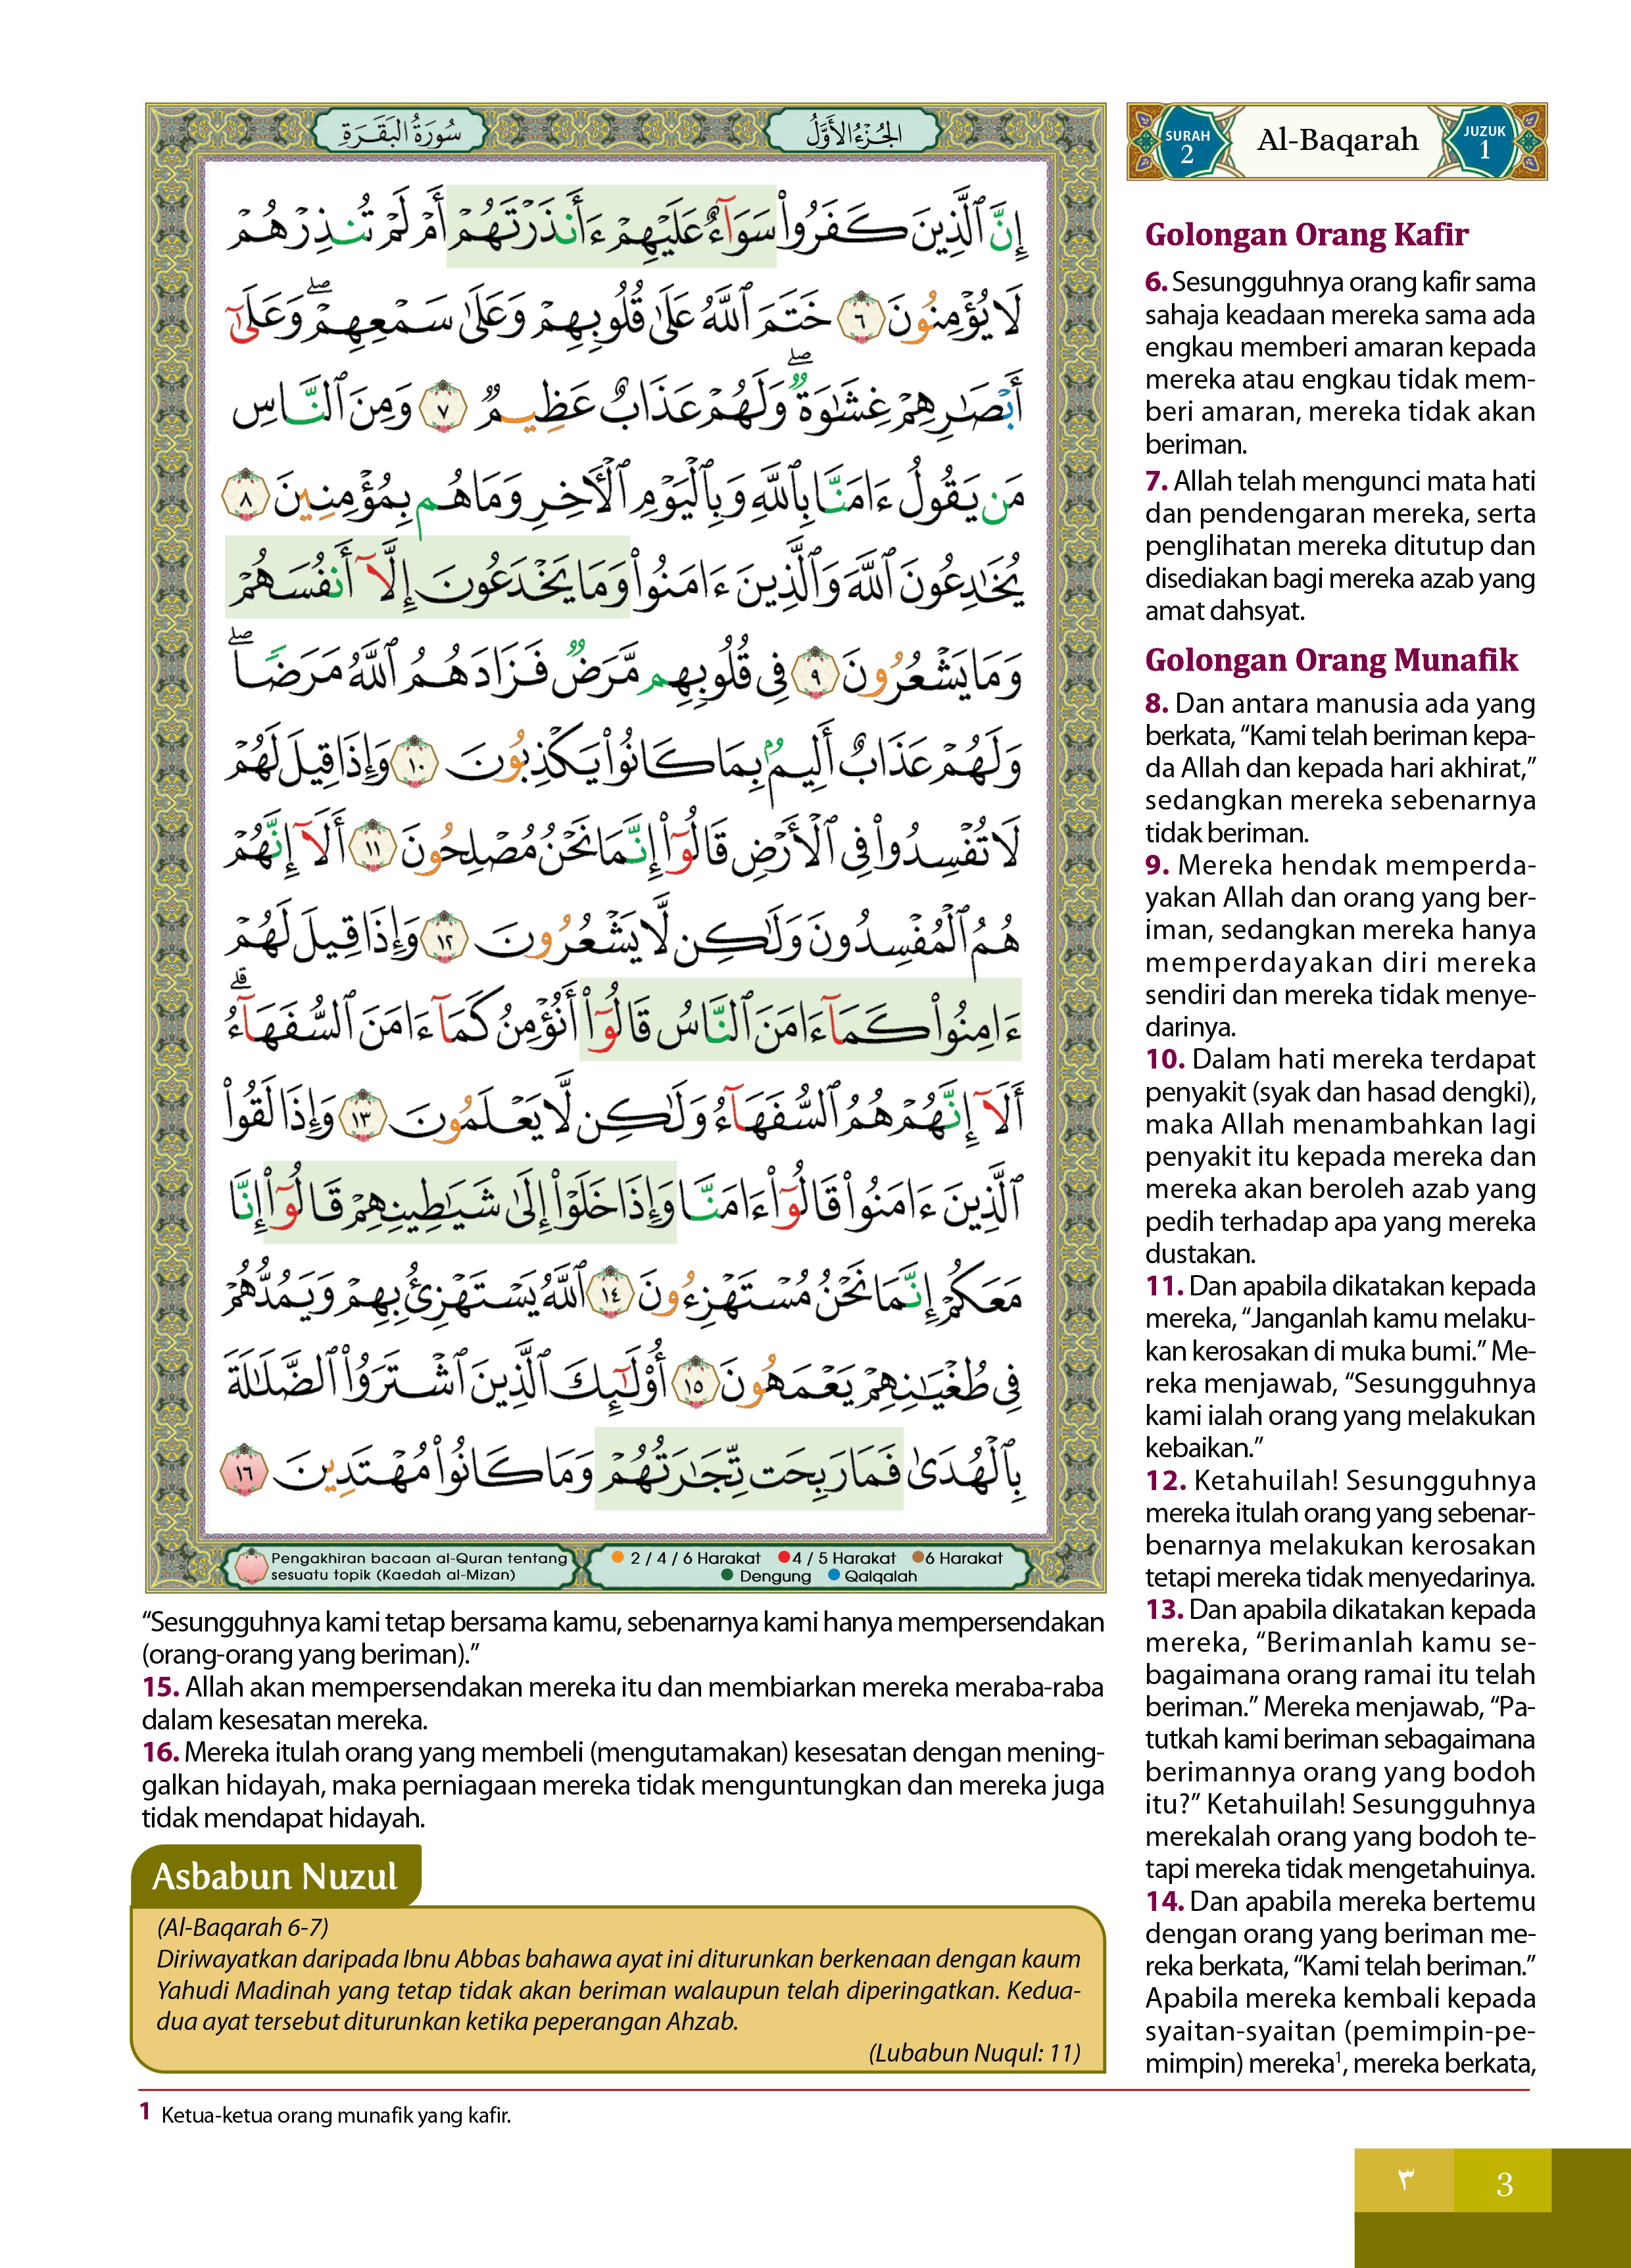 سُورَةُ الْبَقَرَةِ
الجُزْءُ الأَوَّلُ
إِنَّ ٱلَّذِينَ كَفَرُوا۟ سَوَآءٌ عَلَيْهِمْ ءَأَنذَرْتَهُمْ أَمْ لَمْ تُنذِرْهُمْ
لَا يُؤْمِنُونَ ٦ خَتَمَ ٱللَّهُ عَلَىٰ قُلُوبِهِمْ وَعَلَىٰ سَمْعِهِمْ ۖ وَعَلَىٰٓ
أَبْصَـٰرِهِمْ غِشَـٰوَةٌ ۖ وَلَهُمْ عَذَابٌ عَظِيمٌ ٧ وَمِنَ ٱلنَّاسِ
مَن يَقُولُ ءَامَنَّا بِٱللَّهِ وَبِٱلْيَوْمِ ٱلْـَٔاخِرِ وَمَا هُم بِمُؤْمِنِينَ ٨
يُخَـٰدِعُونَ ٱللَّهَ وَٱلَّذِينَ ءَامَنُوا۟ وَمَا يَخْدَعُونَ إِلَّآ أَنفُسَهُمْ
وَمَا يَشْعُرُونَ ٩ فِى قُلُوبِهِم مَّرَضٌ فَزَادَهُمُ ٱللَّهُ مَرَضًا ۖ
وَلَهُمْ عَذَابٌ أَلِيمٌۢ بِمَا كَانُوا۟ يَكْذِبُونَ ١٠ وَإِذَا قِيلَ لَهُمْ
لَا تُفْسِدُوا۟ فِى ٱلْأَرْضِ قَالُوٓا۟ إِنَّمَا نَحْنُ مُصْلِحُونَ ١١ أَلَآ إِنَّهُمْ
هُمُ ٱلْمُفْسِدُونَ وَلَـٰكِن لَّا يَشْعُرُونَ ١٢ وَإِذَا قِيلَ لَهُمْ
ءَامِنُوا۟ كَمَآ ءَامَنَ ٱلنَّاسُ قَالُوٓا۟ أَنُؤْمِنُ كَمَآ ءَامَنَ ٱلسُّفَهَآءُ ۗ
أَلَآ إِنَّهُمْ هُمُ ٱلسُّفَهَآءُ وَلَـٰكِن لَّا يَعْلَمُونَ ١٣ وَإِذَا لَقُوا۟
ٱلَّذِينَ ءَامَنُوا۟ قَالُوٓا۟ ءَامَنَّا وَإِذَا خَلَوْا۟ إِلَىٰ شَيَـٰطِينِهِمْ قَالُوٓا۟ إِنَّا
مَعَكُمْ إِنَّمَا نَحْنُ مُسْتَهْزِءُونَ ١٤ ٱللَّهُ يَسْتَهْزِئُ بِهِمْ وَيَمُدُّهُمْ
فِى طُغْيَـٰنِهِمْ يَعْمَهُونَ ١٥ أُو۟لَـٰٓئِكَ ٱلَّذِينَ ٱشْتَرَوُا۟ ٱلضَّلَـٰلَةَ
بِٱلْهُدَىٰ فَمَا رَبِحَت تِّجَـٰرَتُهُمْ وَمَا كَانُوا۟ مُهْتَدِينَ ١٦
Pengakhiran bacaan al-Quran tentang
sesuatu topik (Kaedah al-Mizan)
2 / 4 / 6 Harakat 4 / 5 Harakat 6 Harakat
Dengung Qalqalah
SURAH 2
Al-Baqarah
JUZUK 1
Golongan Orang Kafir
6. Sesungguhnya orang kafir sama
sahaja keadaan mereka sama ada
engkau memberi amaran kepada
mereka atau engkau tidak mem-
beri amaran, mereka tidak akan
beriman.
7. Allah telah mengunci mata hati
dan pendengaran mereka, serta
penglihatan mereka ditutup dan
disediakan bagi mereka azab yang
amat dahsyat.
Golongan Orang Munafik
8. Dan antara manusia ada yang
berkata, “Kami telah beriman kepa-
da Allah dan kepada hari akhirat,”
sedangkan mereka sebenarnya
tidak beriman.
9. Mereka hendak memperda-
yakan Allah dan orang yang ber-
iman, sedangkan mereka hanya
memperdayakan diri mereka
sendiri dan mereka tidak menye-
darinya.
10. Dalam hati mereka terdapat
penyakit (syak dan hasad dengki),
maka Allah menambahkan lagi
penyakit itu kepada mereka dan
mereka akan beroleh azab yang
pedih terhadap apa yang mereka
dustakan.
11. Dan apabila dikatakan kepada
mereka, “Janganlah kamu melaku-
kan kerosakan di muka bumi.” Me-
reka menjawab, “Sesungguhnya
kami ialah orang yang melakukan
kebaikan.”
12. Ketahuilah! Sesungguhnya
mereka itulah orang yang sebenar-
benarnya melakukan kerosakan
tetapi mereka tidak menyedarinya.
13. Dan apabila dikatakan kepada
mereka, “Berimanlah kamu se-
bagaimana orang ramai itu telah
beriman.” Mereka menjawab, “Pa-
tutkah kami beriman sebagaimana
berimannya orang yang bodoh
itu?” Ketahuilah! Sesungguhnya
merekalah orang yang bodoh te-
tapi mereka tidak mengetahuinya.
14. Dan apabila mereka bertemu
dengan orang yang beriman me-
reka berkata, “Kami telah beriman.”
Apabila mereka kembali kepada
syaitan-syaitan (pemimpin-pe-
mimpin) mereka¹, mereka berkata,
“Sesungguhnya kami tetap bersama kamu, sebenarnya kami hanya mempersendakan
(orang-orang yang beriman).”
15. Allah akan mempersendakan mereka itu dan membiarkan mereka meraba-raba
dalam kesesatan mereka.
16. Mereka itulah orang yang membeli (mengutamakan) kesesatan dengan mening-
galkan hidayah, maka perniagaan mereka tidak menguntungkan dan mereka juga
tidak mendapat hidayah.
Asbabun Nuzul
(Al-Baqarah 6-7)
Diriwayatkan daripada Ibnu Abbas bahawa ayat ini diturunkan berkenaan dengan kaum
Yahudi Madinah yang tetap tidak akan beriman walaupun telah diperingatkan. Kedua-
dua ayat tersebut diturunkan ketika peperangan Ahzab.
(Lubabun Nuqul: 11)
1 Ketua-ketua orang munafik yang kafir.
٣ 3